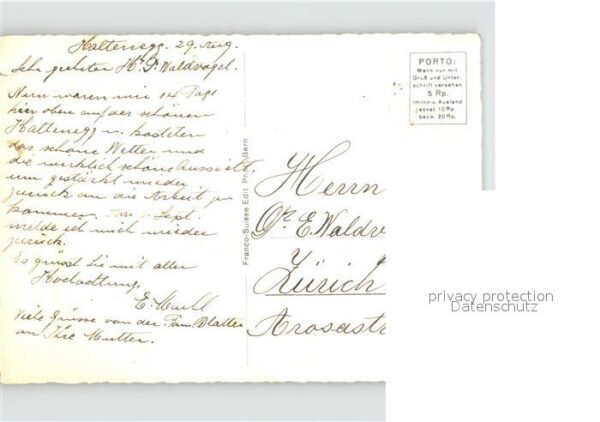 Haltenegg. 29. Aug.
Sehr geehrter Hr. Dr. Waldvogel.
Nun waren wir 14 Tage
hier oben auf der schönen
Haltenegg u. kosteten
das schöne Wetter und
die wirklich schöne Aussicht.
um gestärkt wieder
zurück an die Arbeit zu
kommen. Sept.
melde ich mich wieder
zurück.
Es grüsst Sie mit aller
Hochachtung,
E.
Viele Grüsse von der Fam. Blatter
an Ihre Mutter.
Franco-Suisse Edit Prod Bern
PORTO:
Wenn nur mit
Gruß und Unter-
schrift versehen
5 Rp.
im Inn- u. Ausland
sonst 10 Rp.
bezw. 20 Rp.
Herrn
Dr. E. Waldv
Zürich
Arosastr
privacy protection
Datenschutz